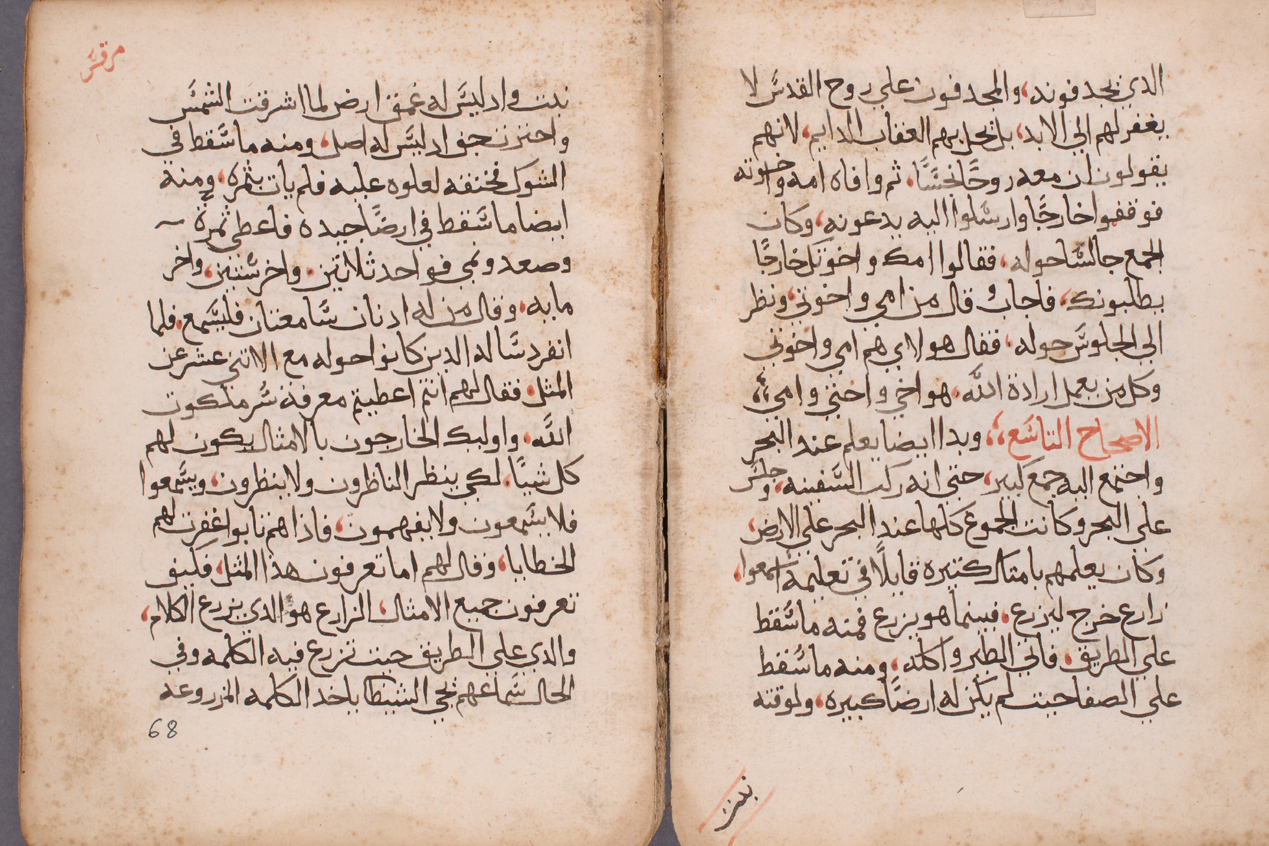 الذي يجدفونه، والمجدفون على روح القدس لا
يغفر لهم الى الابد، بل تحل بهم العقاب الدايم، لانهم
يقولون ان معه روحًا نجسًا، ثم وافاه امه واخوته
فوقفوا خارجًا وارسلوا اليه يدعونه، وكان
الجمع جالسًا حوله، فقالوا امك واخوتك خارجًا
يطلبونك، فاجاب وقال من امي واخوتي، ونظر
الى الجلوس حوله، فقال هولاي هم امي واخوتي
وكل من يعمل ارادة الله، هو اخي واختي وامي،،
الاصحاح التاسع،، وبدا ايضا يعلم عند البحر
واجتمع اليه جمع كبير، حتى انه ركب السفينه، وجلس
على البحر وكانت الجموع كلها عند البحر على الارض،
وكان يعلمهم بامثال كثيره قايلًا في تعليمه اسمعوا،
زارع خرج ليزرع، فبينما هو يزرع فمنه ما سقط
على الطريق، فاتى الطير واكله، ومنه ما سقط
على الصفا حيث لم يكن له ارضًا كبيره، ولوقته
نبت
مرقس
نبت واد ليس له عمق ارض لما اشرقت الشمس
واحترق جف اد ليس له اصل، ومنه ما سقط في
الشوك فخنقه لعلوه عليه فلم يات بثمره، ومنه
ايضا ما سقط في ارضًا جيده فاعطى ثمرة
وصعد ونمى فواحد ثلاثين، واخر ستين، واخر
مايه، وقال من له ادنان سامعتان فليسمع، فلما
انفرد ساله الدين كانوا حوله مع الاتنى عشر عن
المثل، فقال لهم انتم اعطيتم معرفة سر ملكوت
الله، واوليك الخارجون بالامثال يكون لهم
كل شيًا، لكي ينظر الناظرون ولا ينظرون، ويسمعوا
فلا يسمعون ولا يفهمون، فاذا هم تابوا غفرت لهم
الخطايا، وقال لهم اما تعرفون هذا المثل، فكيف
تعرفون جميع الامثال، الزارع هو الدي يزرع الكلام،
والدي على الطريق حيث تزرع فيه الكلمه وفي
الحال سماعهم فجي الشيطا ياخد الكلمه المزروعه
68